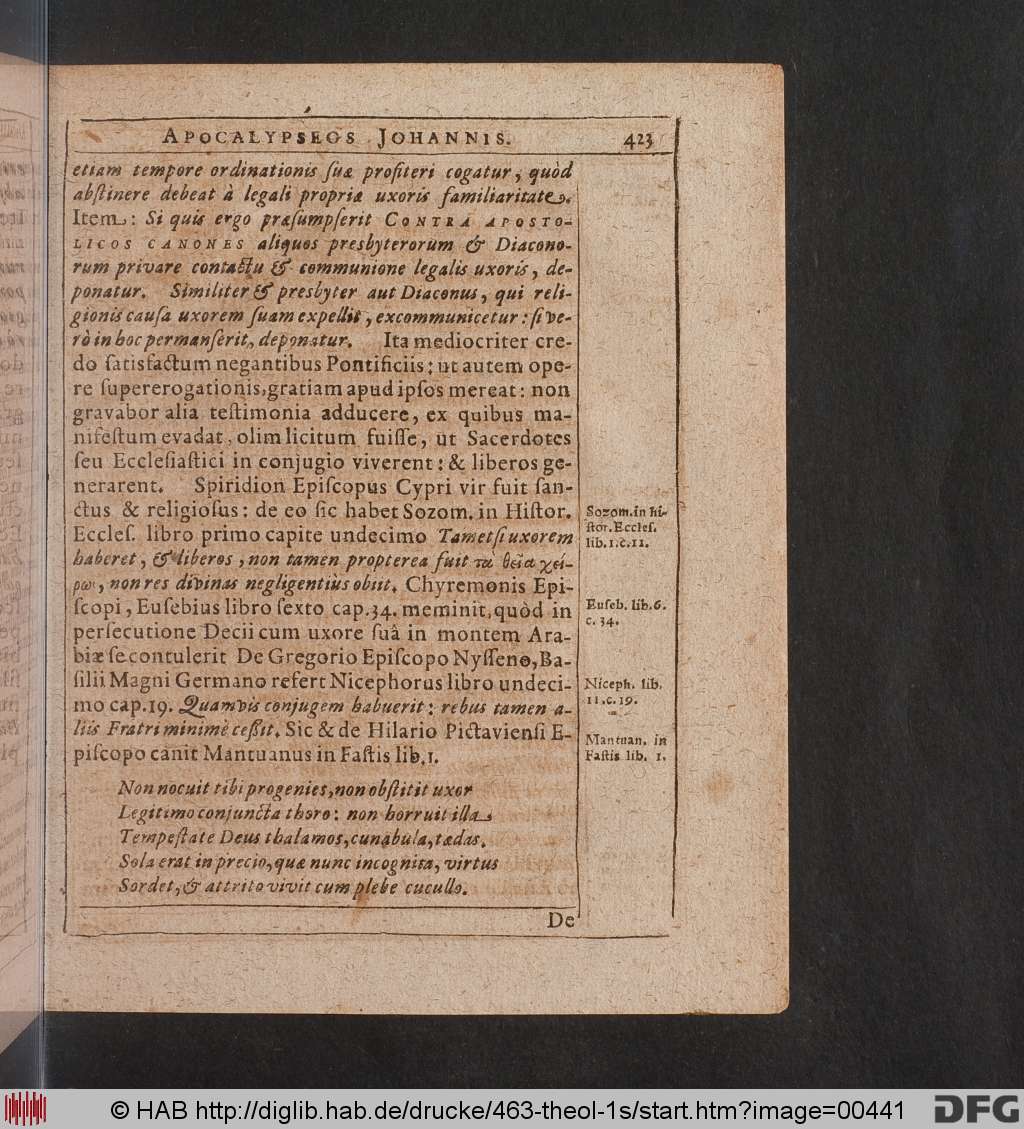 APOCALYPSEOS JOHANNIS. 423
etiam tempore ordinationis ſuæ profiteri cogatur, quòd
abſtinere debeat à legali propriæ uxoris familiaritate.
Item: Si quis ergo præſumpſerit CONTRA APOSTO-
LICOS CANONES aliquos presbyterorum & Diacono-
rum privare contactu & communione legalis uxoris, de-
ponatur. Similiter & presbyter aut Diaconus, qui reli-
gionis cauſa uxorem ſuam expellit, excommunicetur: ſi ve-
rò in hoc permanſerit, deponatur. Ita mediocriter cre-
do ſatisfactum negantibus Pontificiis: ut autem ope-
re ſupererogationis, gratiam apud ipſos mereat: non
gravabor alia teſtimonia adducere, ex quibus ma-
nifeſtum evadat, olim licitum fuiſſe, ut Sacerdotes
ſeu Eccleſiaſtici in conjugio viverent: & liberos ge-
nerarent. Spiridion Epiſcopus Cypri vir fuit ſan-
ctus & religioſus: de eo ſic habet Sozom. in Hiſtor.
Eccleſ. libro primo capite undecimo Tametſi uxorem
haberet, & liberos, non tamen propterea fuit τὰ θεῖα χεί-
ρων, non res divinas negligentiùs obiit. Chyremonis Epi-
ſcopi, Euſebius libro ſexto cap. 34. meminit, quòd in
perſecutione Decii cum uxore ſuâ in montem Ara-
biæ ſe contulerit De Gregorio Epiſcopo Nyſſeno, Ba-
ſilii Magni Germano refert Nicephorus libro undeci-
mo cap. 19. Quamvis conjugem habuerit: rebus tamen a-
liis Fratri minimè ceßit. Sic & de Hilario Pictavienſi E-
piſcopo canit Mantuanus in Faſtis lib. 1.
Non nocuit tibi progenies, non obſtitit uxor
Legitimo conjuncta thoro: non horruit illa
Tempeſtate Deus thalamos, cunabula, tædas.
Sola erat in precio, quæ nunc incognita, virtus
Sordet, & attrito vivit cum plebe cucullo.
De
Sozom. in hi-
ſtor. Eccleſ.
lib. 1. c. 11.
Euſeb. lib. 6.
c. 34.
Niceph. lib.
11. c. 19.
Mantuan. in
Faſtis lib. 1.
© HAB http://diglib.hab.de/drucke/463-theol-1s/start.htm?image=00441
DFG